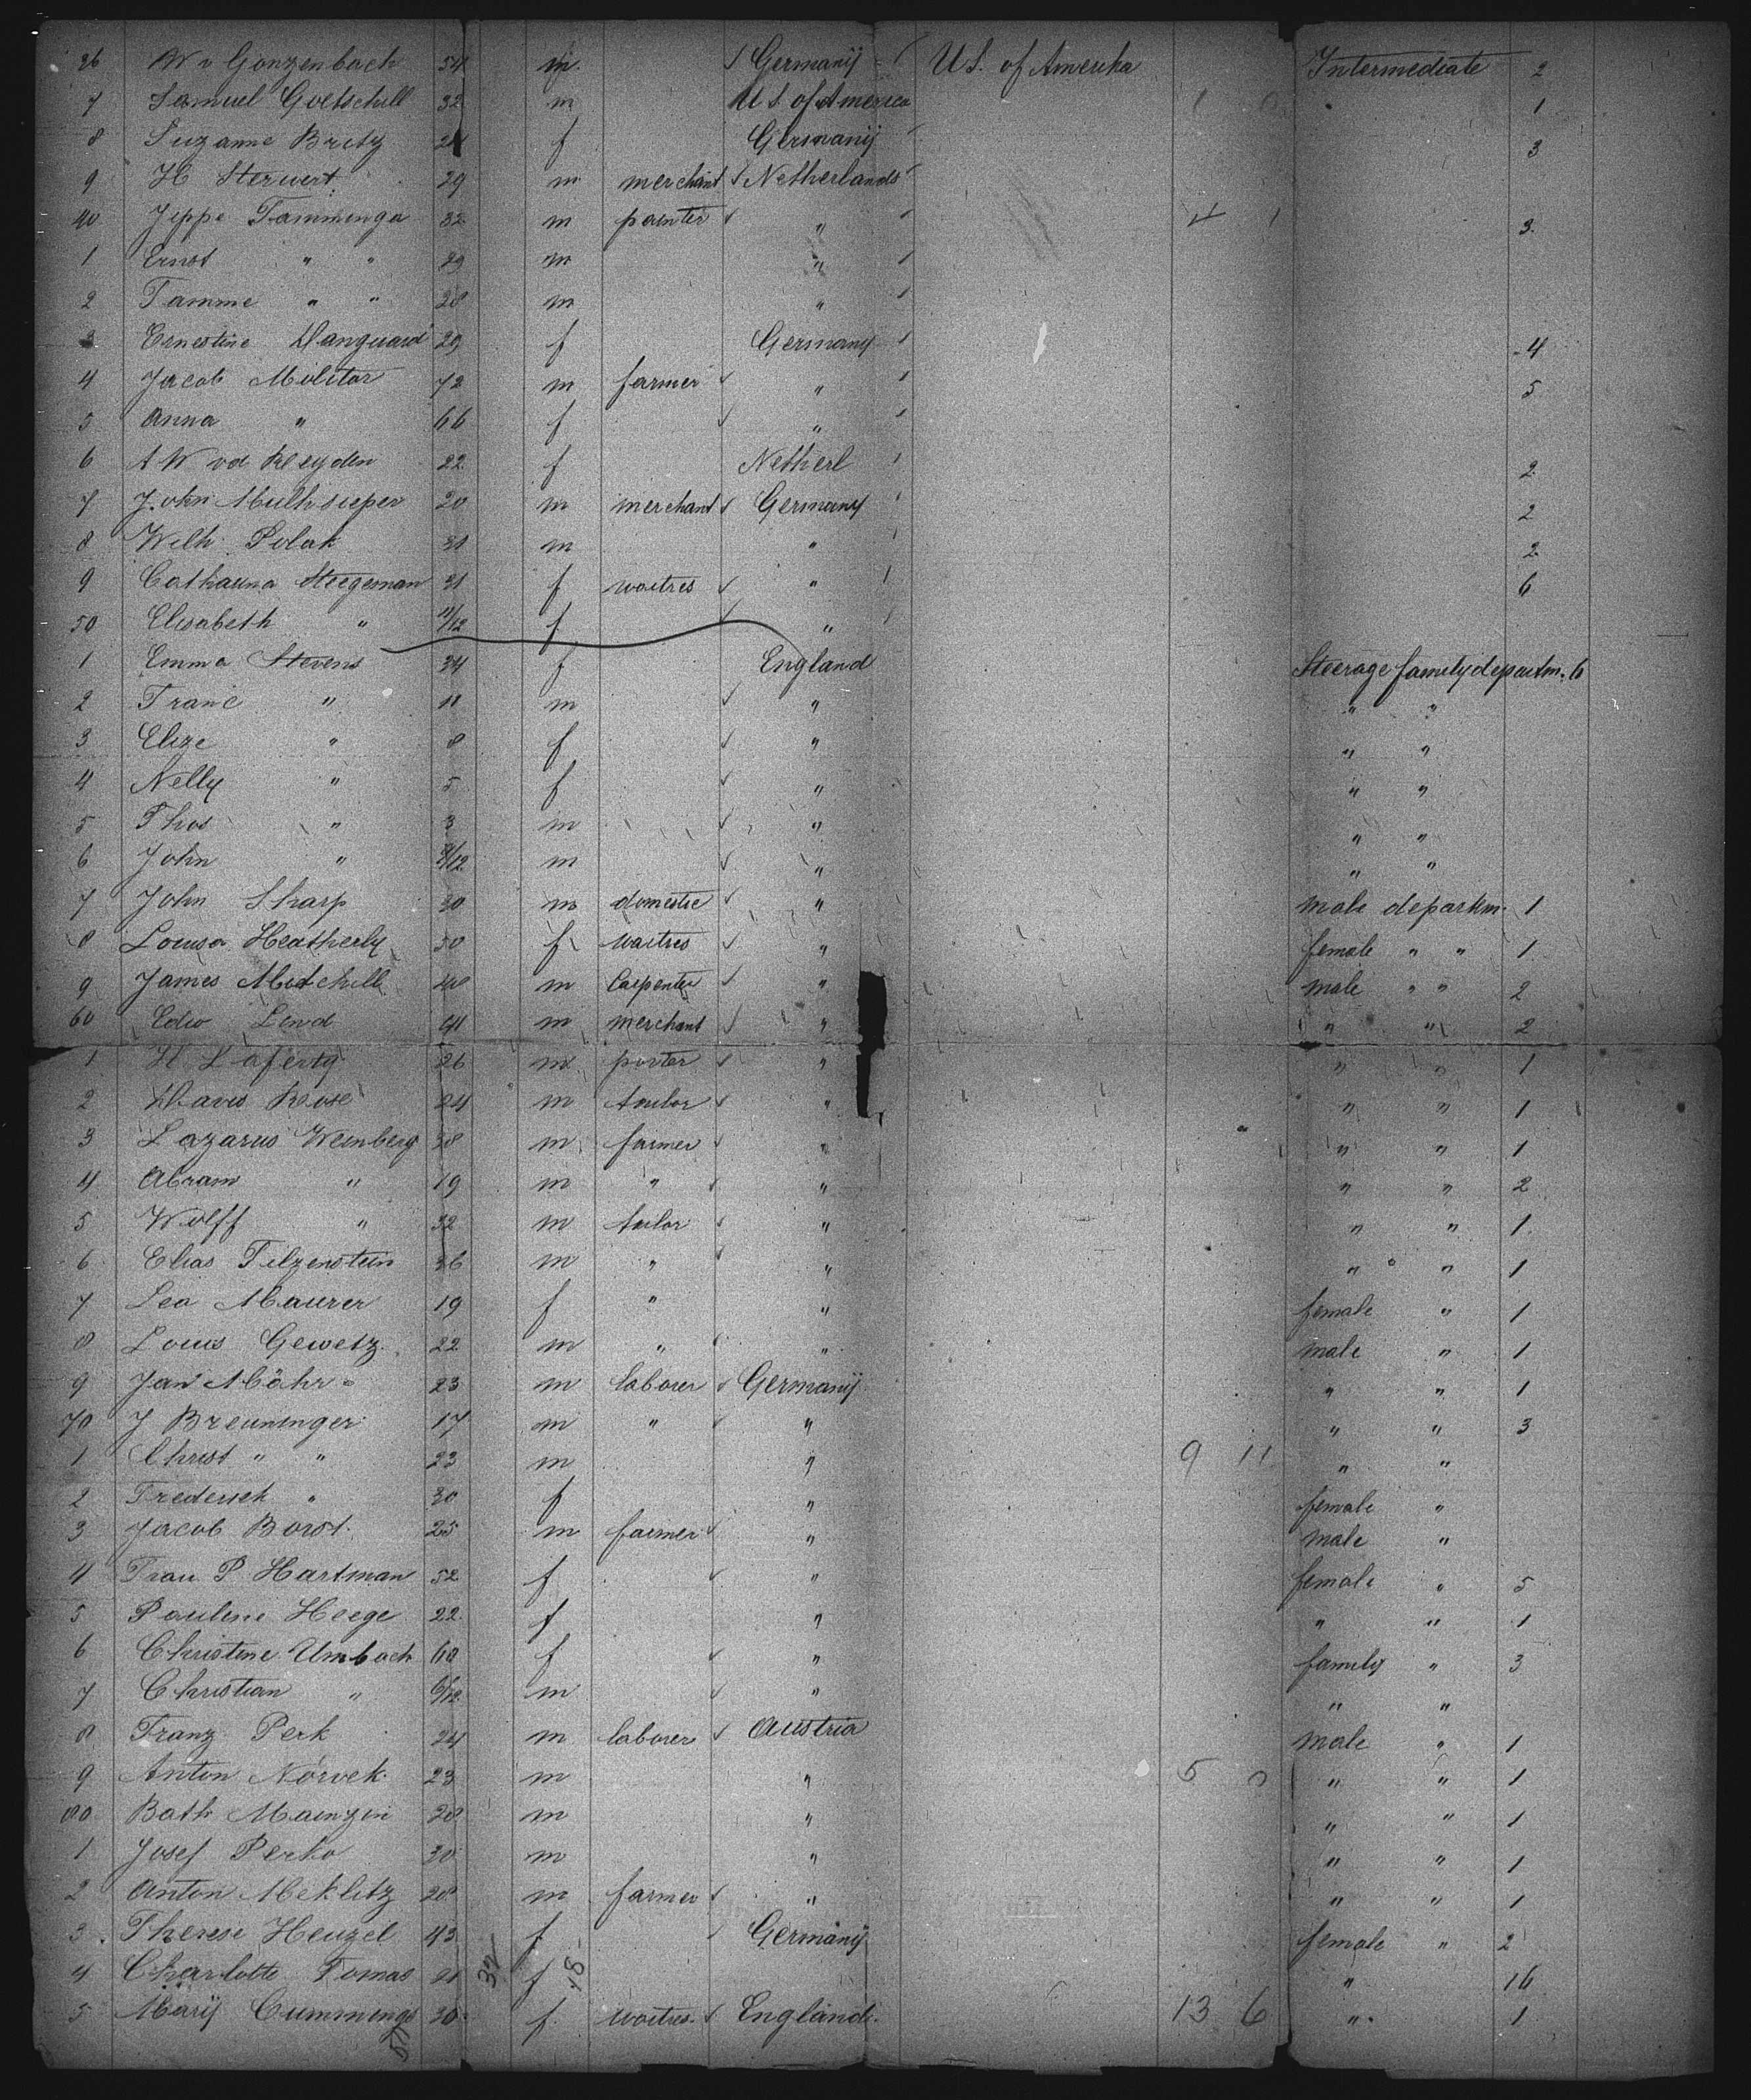 26 W v Gonzenbach 54 m. ✓ Germanÿ U S. of Amerika Intermediate 2
7 Samuel Goetschell 32 m U S of America 1
8 Suzanne Bretz 24 f Germanÿ 3
9 H Sterwert 29 m merchant ✓ Netherlands
40 Jeppe Tamminga 32 m painter ✓ " 4 1 3
1 Ernst " " 29 m "
2 Tamme " " 28 m "
3 Ernestine Dangward 29 f Germany 4
4 Jacob Molitor 72 m farmer ✓ " 5
5 Anna " 66 f ✓ "
6 A W vd Heyden 22 f Netherl 2
7 John Mulhsieper 20 m merchant ✓ Germany 2
8 Wilh Polak 31 m " 2
9 Catharina Steegeman 31 f waitres ✓ " 6
50 Elisabeth " 11/12 f ✓ "
1 Emma Stevens 34 f England Steerage family departm. 6
2 Franc " 11 m ✓ " " "
3 Elize " 8 f ✓ " " "
4 Nelly " 5 f ✓ " " "
5 Thos " 3 m ✓ " " "
6 John " /12 m ✓ " " "
7 John Sharp 30 m domestic ✓ " male departm. 1
8 Louisa Heatherly 50 f waitres ✓ " female " " 1
9 James Mitchell 48 m Carpenter ✓ " male " " 2
60 Edw Lewd 41 m merchant ✓ " " " 2
1 H Laferty 26 m porter ✓ " " " 1
2 Davis Rose 24 m tailor ✓ " " " 1
3 Lazarus Weinberg 38 m farmer ✓ " " " 1
4 Abram " 19 m " ✓ " " " 2
5 Wolff " 32 m tailor ✓ " " " 1
6 Elias Filzenstein 36 m " ✓ " " " 1
7 Lea Maurer 19 f " " female " 1
8 Louis Gewetz 22 m " ✓ " male " 1
9 Jan Möhr 23 m laborer ✓ Germanÿ " " 1
70 J Breuninger 17 m " ✓ " " " 3
1 Christ " " 23 m " 9 11 " "
2 Frederick " 30 f " female "
3 Jacob Borst 25 m farmer ✓ " male "
4 Frau P Hartman 52 f ✓ " female " 5
5 Pauline Heege 22 f " " " 1
6 Christine Umbach 60 f ✓ " family " 3
7 Christian " 6/12 m ✓ " " "
8 Franz Perk 24 m laborer ✓ Austria male " 1
9 Anton Nórvek 23 m " 5 0 " " 1
80 Bath Mainzin 28 m " " " 1
1 Josef Perko 30 m " " " 1
2 Anton Meklitz 28 m farmer ✓ " " " 1
3 Therese Heuzel 43 f ✓ Germanÿ female " 2
4 Charlotte Tomas 21 32 f 18 " 16
5 Marÿ Cummings 30 f waitres ✓ England. 13 6 " 1